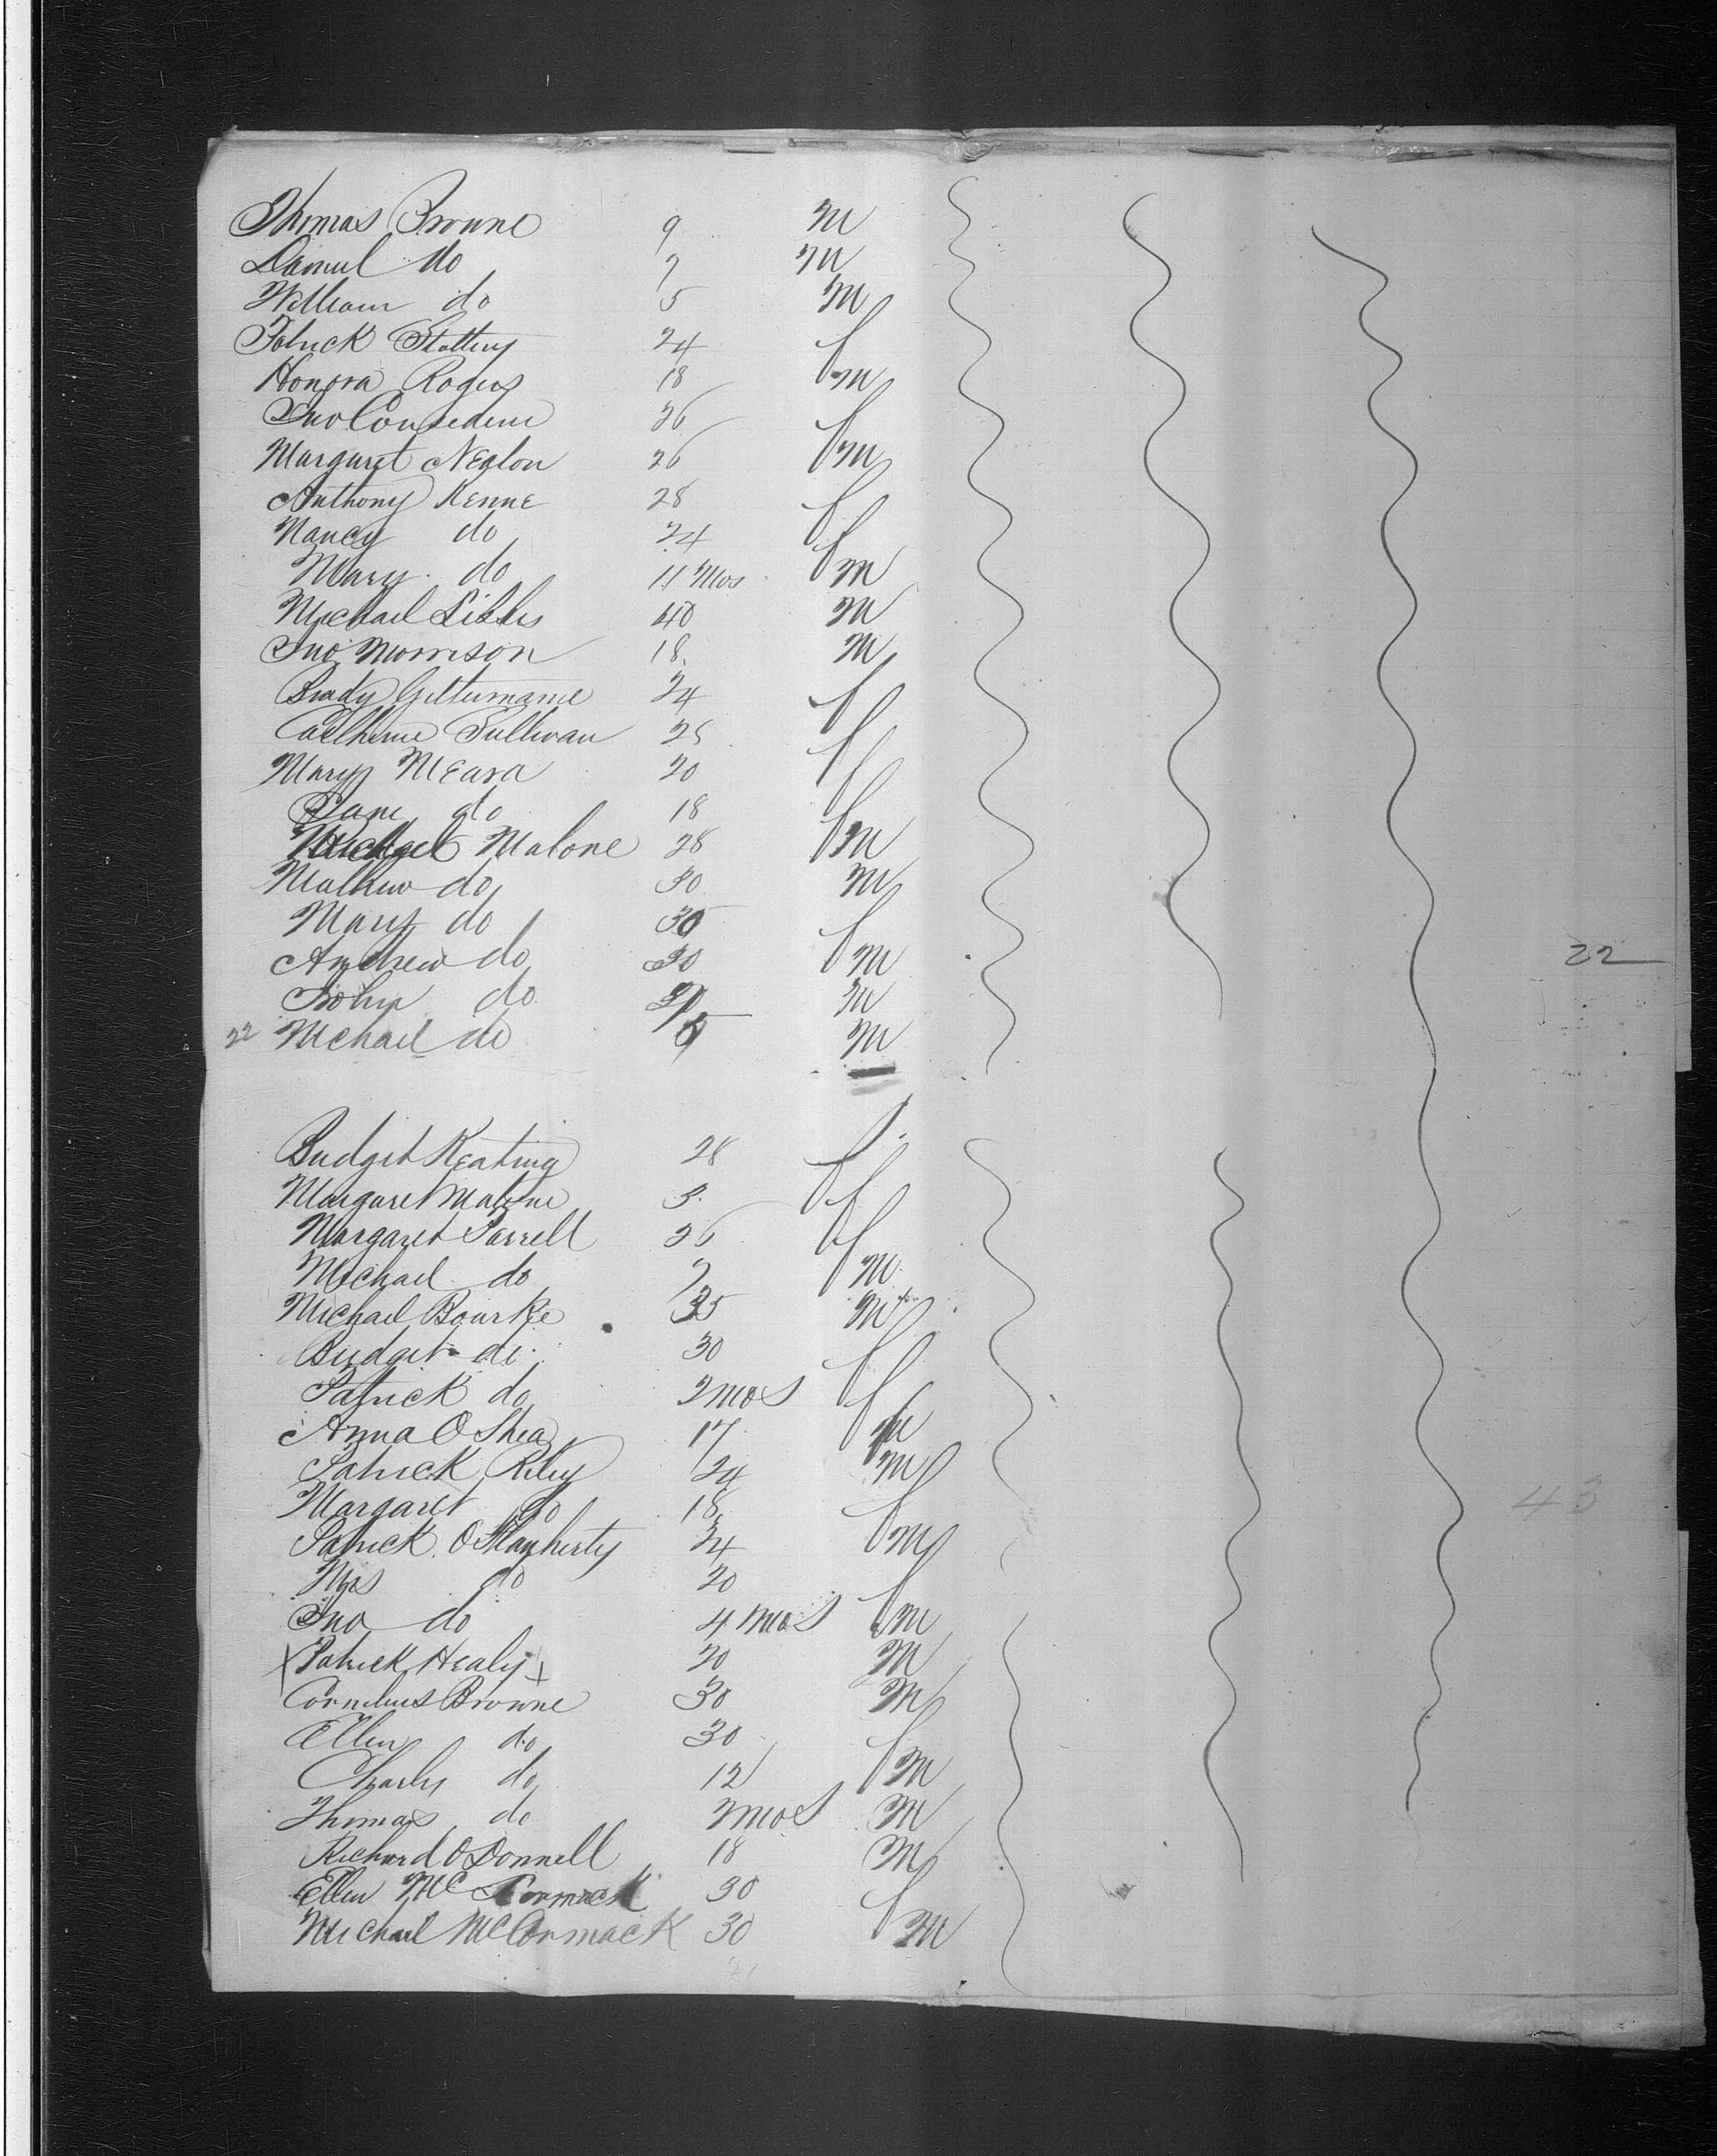 Thomas Browne 9 M
Daniel do 7 M
William do 5 M
Patrick Slattery 24 f
Honora Rogers 18 M
Jno Considine 26 f
Margaret Neglon 26 M
Anthony Kenne 28 f
Nancy do 24 f
Mary do 11 Mos M
Michael 40 M
Jno Morrison 18 M
24 f
Catherine Sullivan 25 f
Mary McEara 20 f
Jane do 18 f
Michael Malone 28 M
Mathew do 30 M
Mary do 30 f
Andrew do 30 M
John do M
22 Michael do M
22
Bridget Keating 28 f
Margaret Malone 3 f
Margaret Farrell 26 f
Michael do 7 M
Michael Bourke 35 M
Bridget do 30 f
Patrick do 2 mos f
Anna O Shea 17 M
Patrick Riley 24 M
Margaret do 18 f
43
Patrick O Flagherty 24 M
Mrs do 20 f
Jno do 4 mos M
Patrick Healy 20 M
Cornelius Browne 30 M
Ellen do 30 f
Charly do 12 M
Thomas do mos M
Richard O Donnell 18 M
Ellen Mc Cormack 30 f
Michael McCormack 30 M